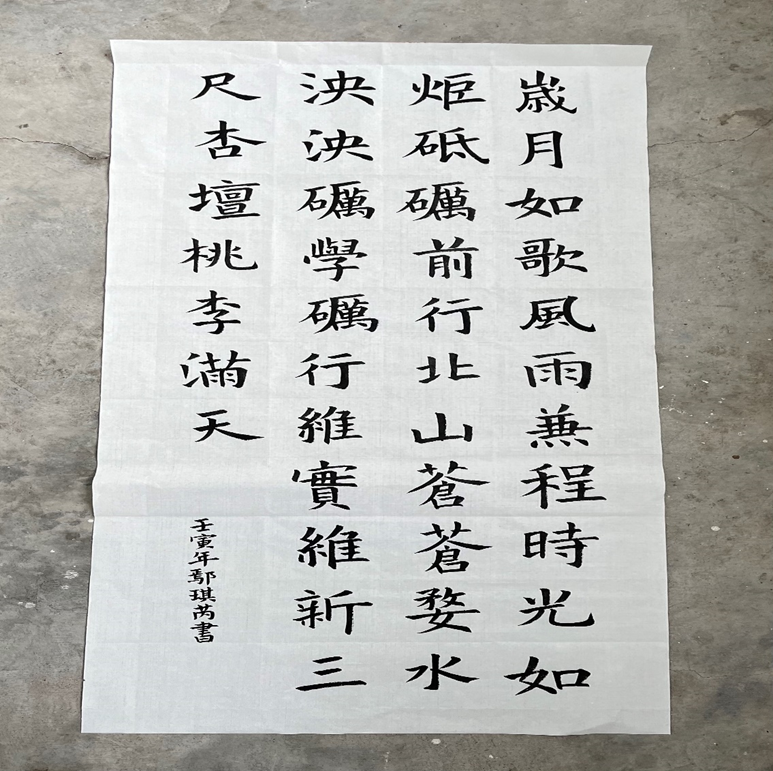 歲月如歌風雨兼程時光如
炬砥礪前行北山蒼蒼婺水
泱泱礪學礪行維實維新三
尺杏壇桃李滿天
壬寅年鄢琪芮書